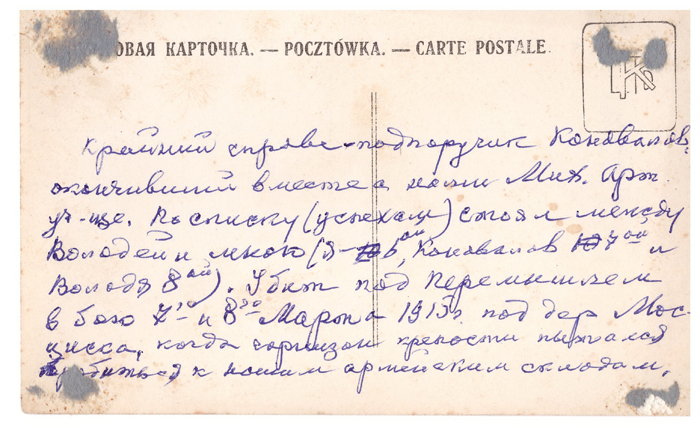 ОВАЯ КАРТОЧКА. — POCZTÓWKA. — CARTE POSTALE.
Крайний справа - подпоручик Коновалов,
окончивший вместе с нами Мих. Арт.
уч-ще. По списку (успехам) стоял между
Володей и мною (Я - 6ой, Коновалов 7ой и
Володя 8ой). Убит под Перемышлем
в бою 7го и 8го Марта 1915г. под дер.
когда гарнизон крепости пытался
пробиться к нашим армейским складам.